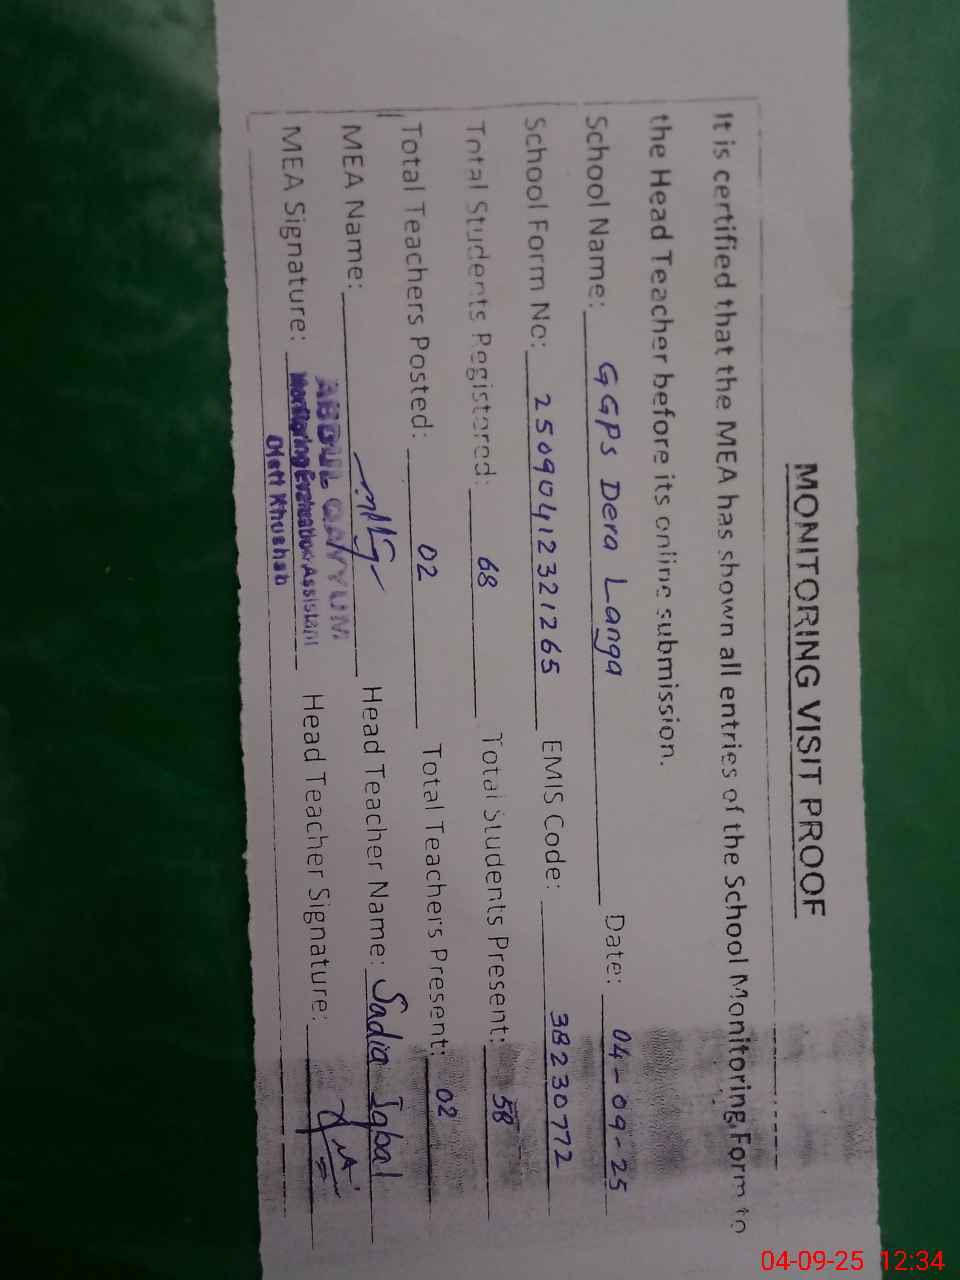 MONITORING VISIT PROOF
It is certified that the MEA has shown all entries of the School Monitoring Form to
the Head Teacher before its online submission.
School Name: GGPS Dera Langa Date: 04-09-25
School Form No: 25090412321265 EMIS Code: 38230772
Total Students Registered: 68 Total Students Present: 58
Total Teachers Posted: 02 Total Teachers Present: 02
MEA Name: Head Teacher Name: Sadia Iqbal
MEA Signature: Head Teacher Signature:
ABDUL QAYYUM
Monitoring Evaluation Assistant
Distt Khushab
04-09-25 12:34